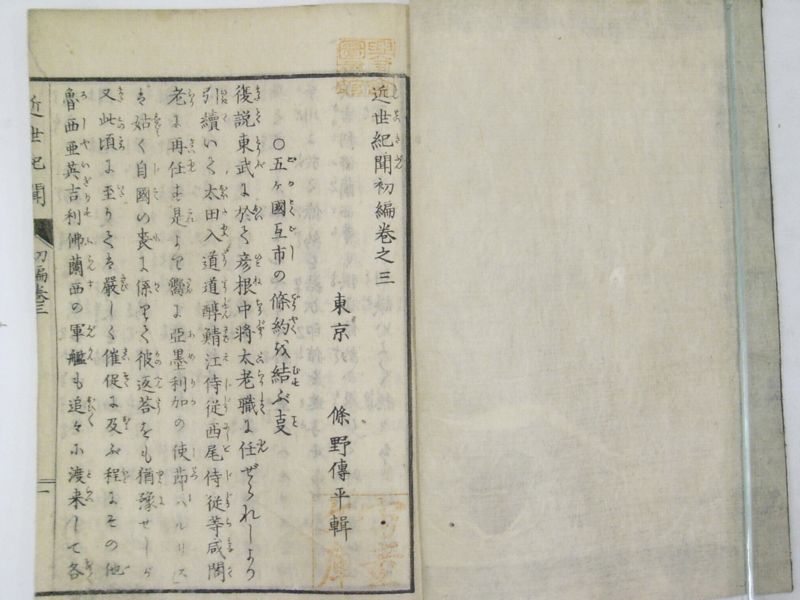 近世紀聞初編巻之三
東京 條野傳平輯
○五ヶ國互市の條約を結ぶ事
復説東武に於て彦根中將大老職に任ぜられしより
引續いて太田入道道醇鯖江侍從西尾侍從等咸閣
老に再任す是より嚮に亜墨利加の使節ハルリス
は姑く自國の喪に係りて彼返答をも猶豫せしが
又此頃に至りては嚴しく催促に及ぶ程にその他
魯西亜英吉利佛蘭西の軍艦も追々に渡来して各
近世紀聞
初編巻三
一